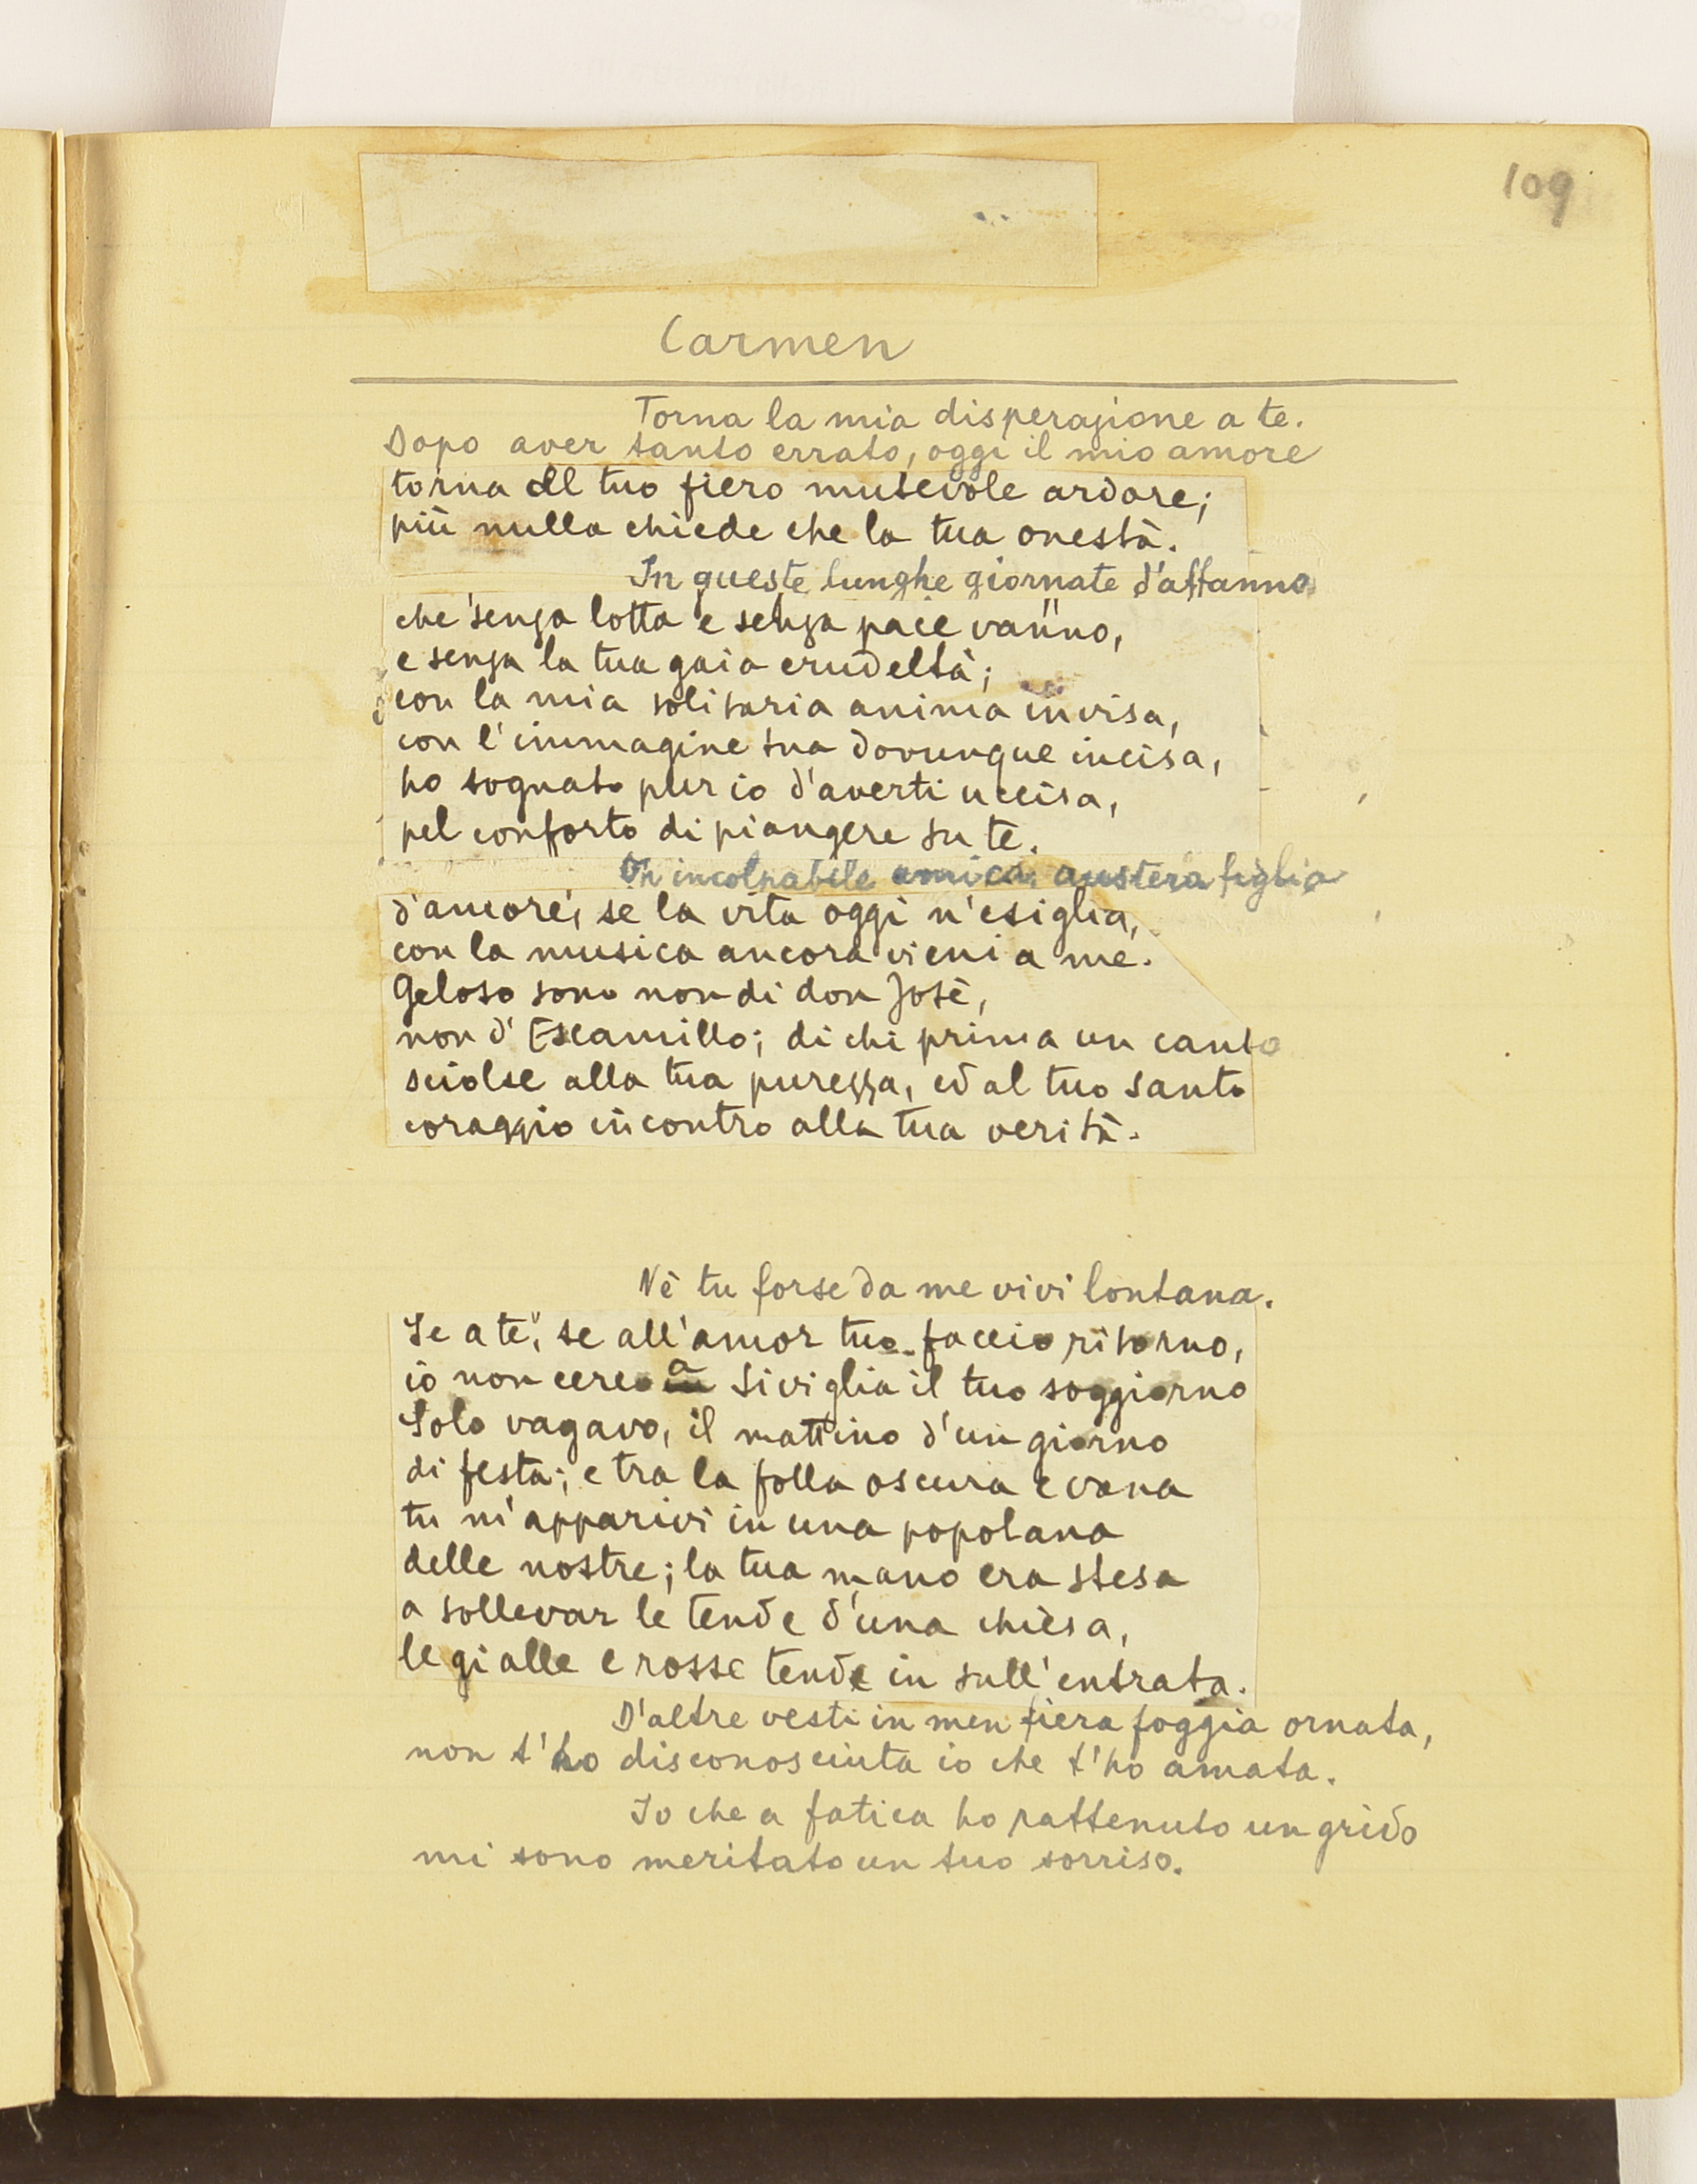 109
Carmen
Torna la mia disperazione a te.
Dopo aver tanto errato, oggi il mio amore
torna al tuo fiero mutevole ardore;
più nulla chiede che la tua onestà.
In queste lunghe giornate d'affanno
che senza lotta e senza pace vanno,
e senza la tua gaia crudeltà;
con la mia solitaria anima invisa,
con l'immagine tua dovunque incisa,
ho sognato pur io d'averti uccisa,
pel conforto di piangere su te.
incolpabile amica, austera figlia
d'amore, se la vita oggi n'esiglia,
con la musica ancora vieni a me.
Geloso sono non di don José,
non d'Escamillo; di chi prima un canto
sciolse alla tua purezza, ed al tuo santo
coraggio incontro alla tua verità.
Nè tu forse da me vivi lontana.
Se a te, se all'amor tuo faccio ritorno,
io non cerco a Siviglia il tuo soggiorno
Solo vagavo, il mattino d'un giorno
di festa; e tra la folla oscura e vana
tu m'apparivi in una popolana
delle nostre; la tua mano era stesa
a sollevar le tende d'una chiesa,
le gialle e rosse tende in sull'entrata.
D'altre vesti in men fiera foggia ornata,
non t'ho disconosciuta io che t'ho amata.
Io che a fatica ho rattenuto un grido
mi sono meritato un tuo sorriso.